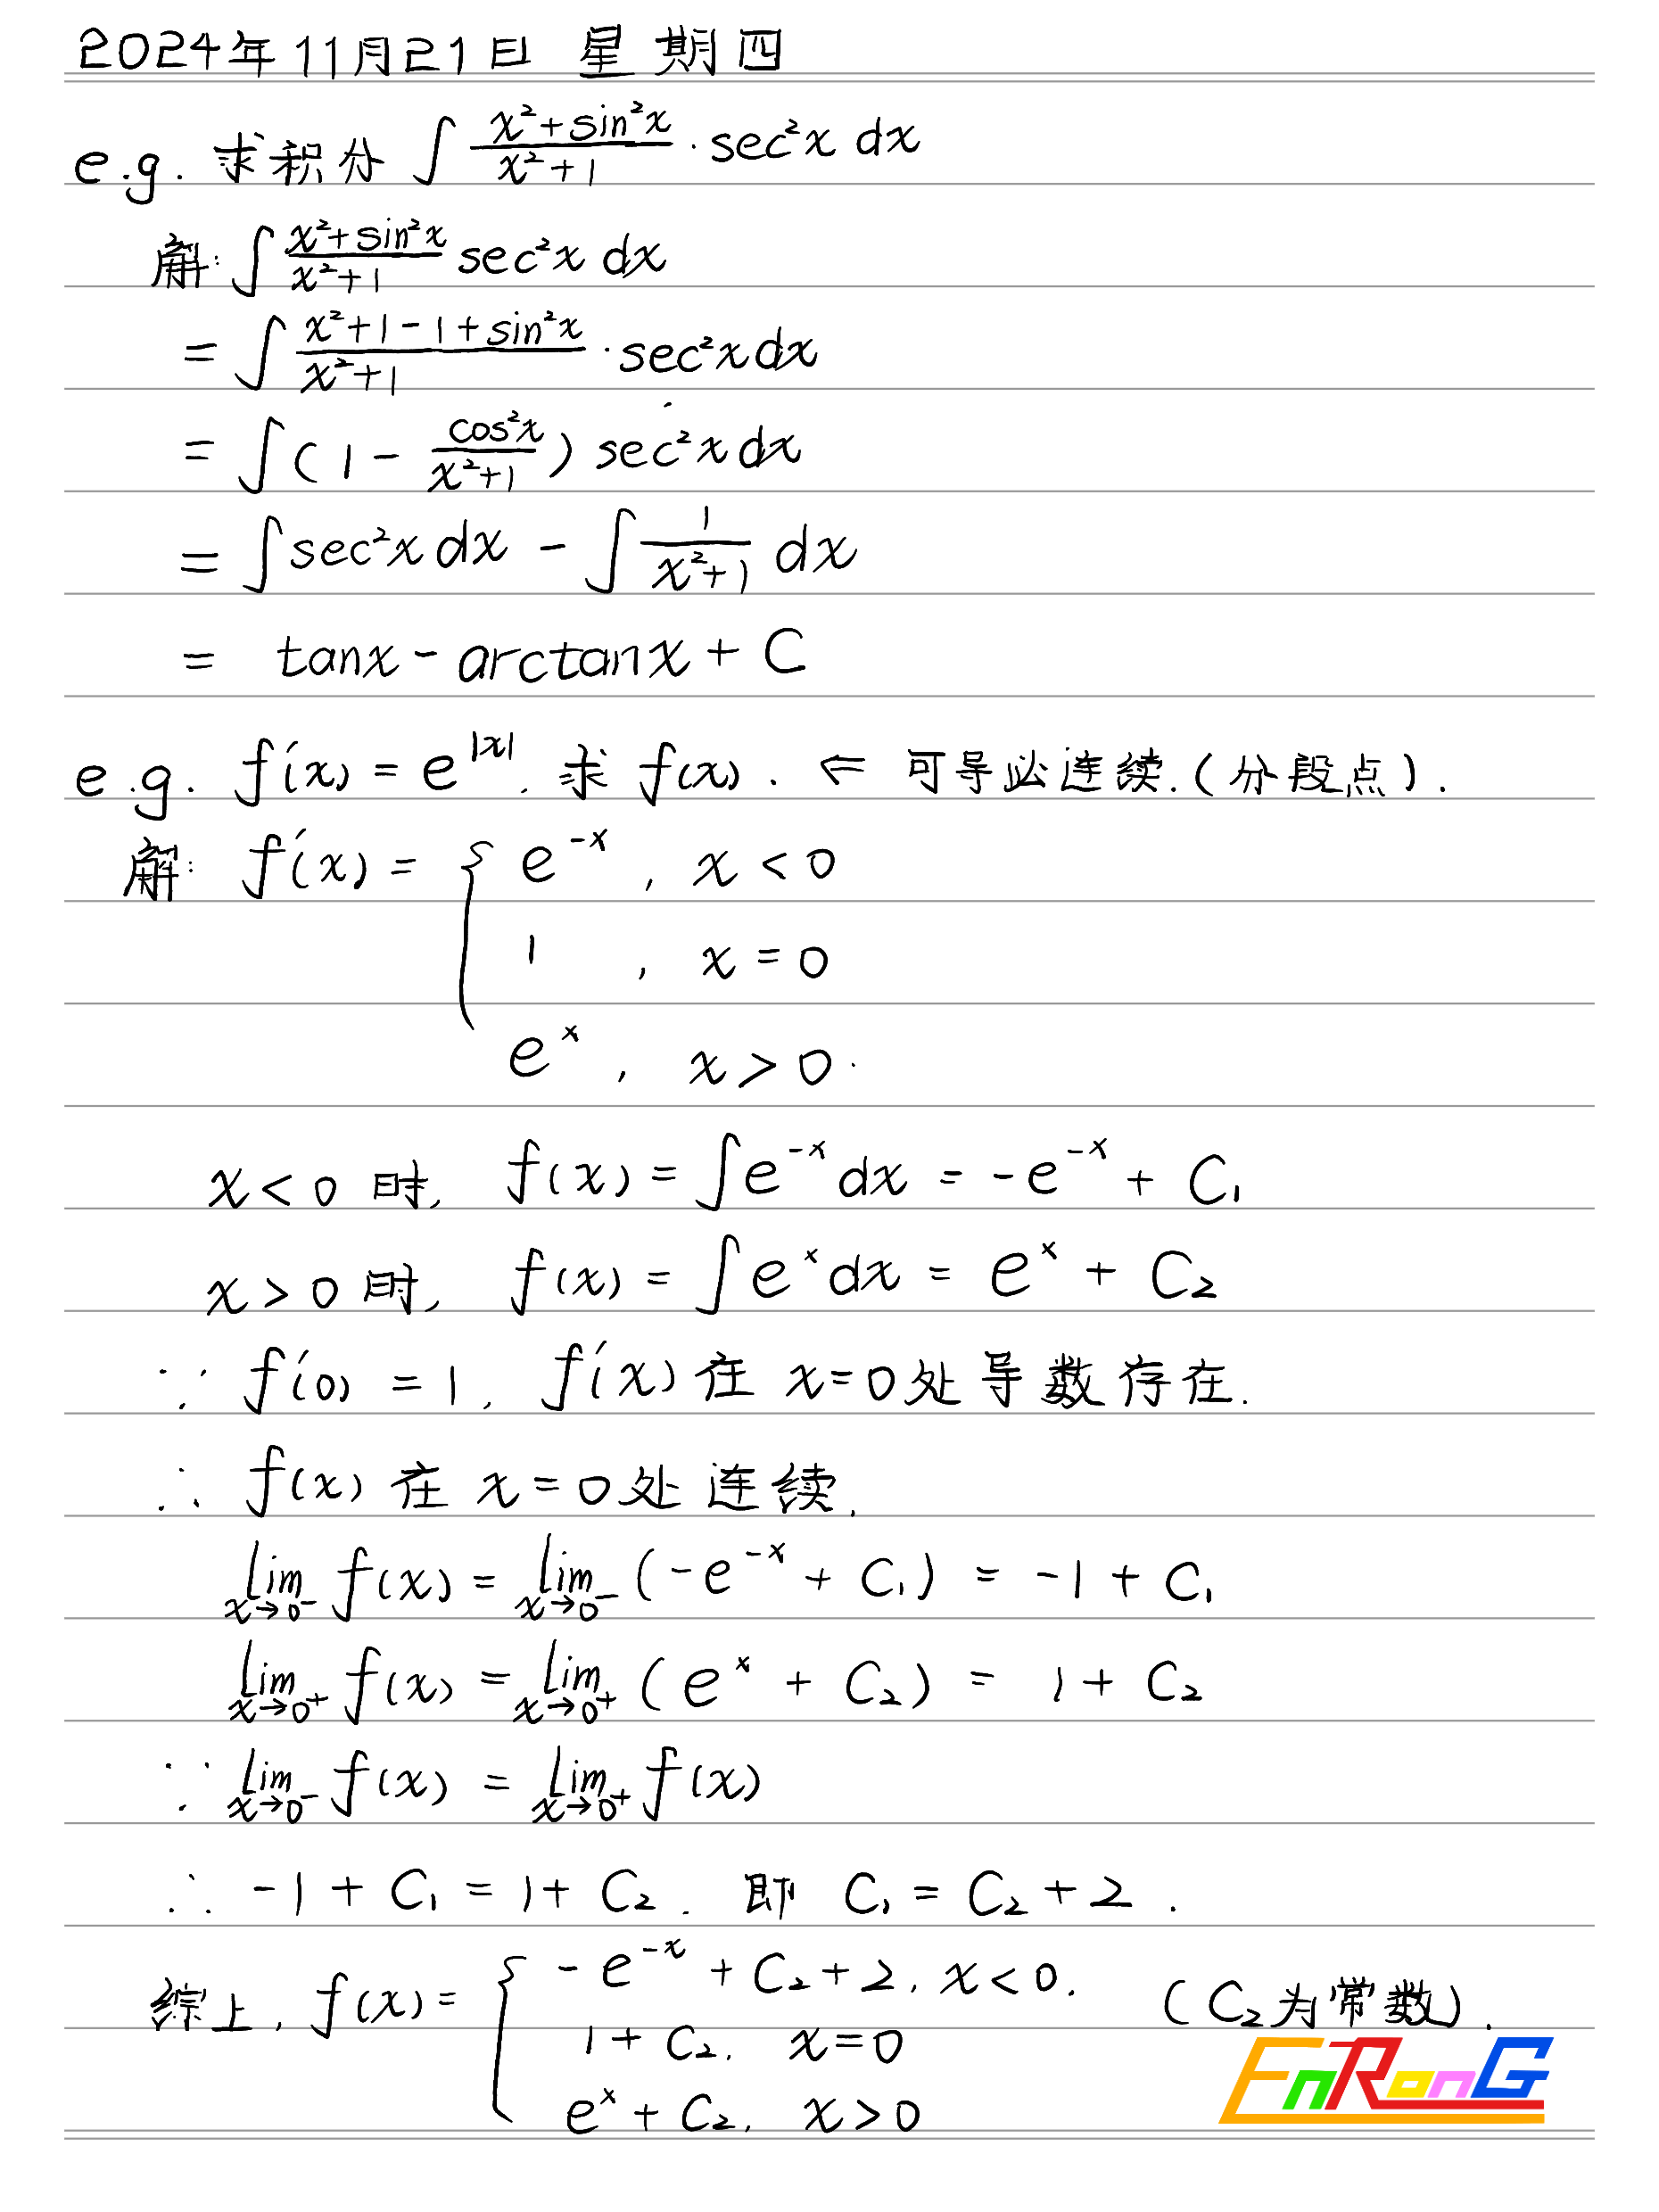 2024年11月21日 星期四
e.g. 求积分 ∫ (x²+sin²x)/(x²+1) · sec²x dx
解: ∫ (x²+sin²x)/(x²+1) sec²x dx
= ∫ (x²+1-1+sin²x)/(x²+1) · sec²x dx
= ∫ (1 - cos²x/(x²+1)) sec²x dx
= ∫ sec²x dx - ∫ 1/(x²+1) dx
= tanx - arctanx + C
e.g. f'(x) = e^|x|, 求 f(x). ⇐ 可导必连续.(分段点).
解: f'(x) = { e^-x , x < 0
1 , x = 0
e^x , x > 0.
x < 0 时, f(x) = ∫ e^-x dx = -e^-x + C₁
x > 0 时, f(x) = ∫ e^x dx = e^x + C₂
∵ f'(0) = 1, f'(x) 在 x=0 处导数存在.
∴ f(x) 在 x=0 处连续,
lim x→0⁻ f(x) = lim x→0⁻ (-e^-x + C₁) = -1 + C₁
lim x→0⁺ f(x) = lim x→0⁺ (e^x + C₂) = 1 + C₂
∵ lim x→0⁻ f(x) = lim x→0⁺ f(x)
∴ -1 + C₁ = 1 + C₂. 即 C₁ = C₂ + 2.
综上, f(x) = { -e^-x + C₂ + 2, x < 0. (C₂为常数).
1 + C₂, x = 0
e^x + C₂, x > 0
EnRonG